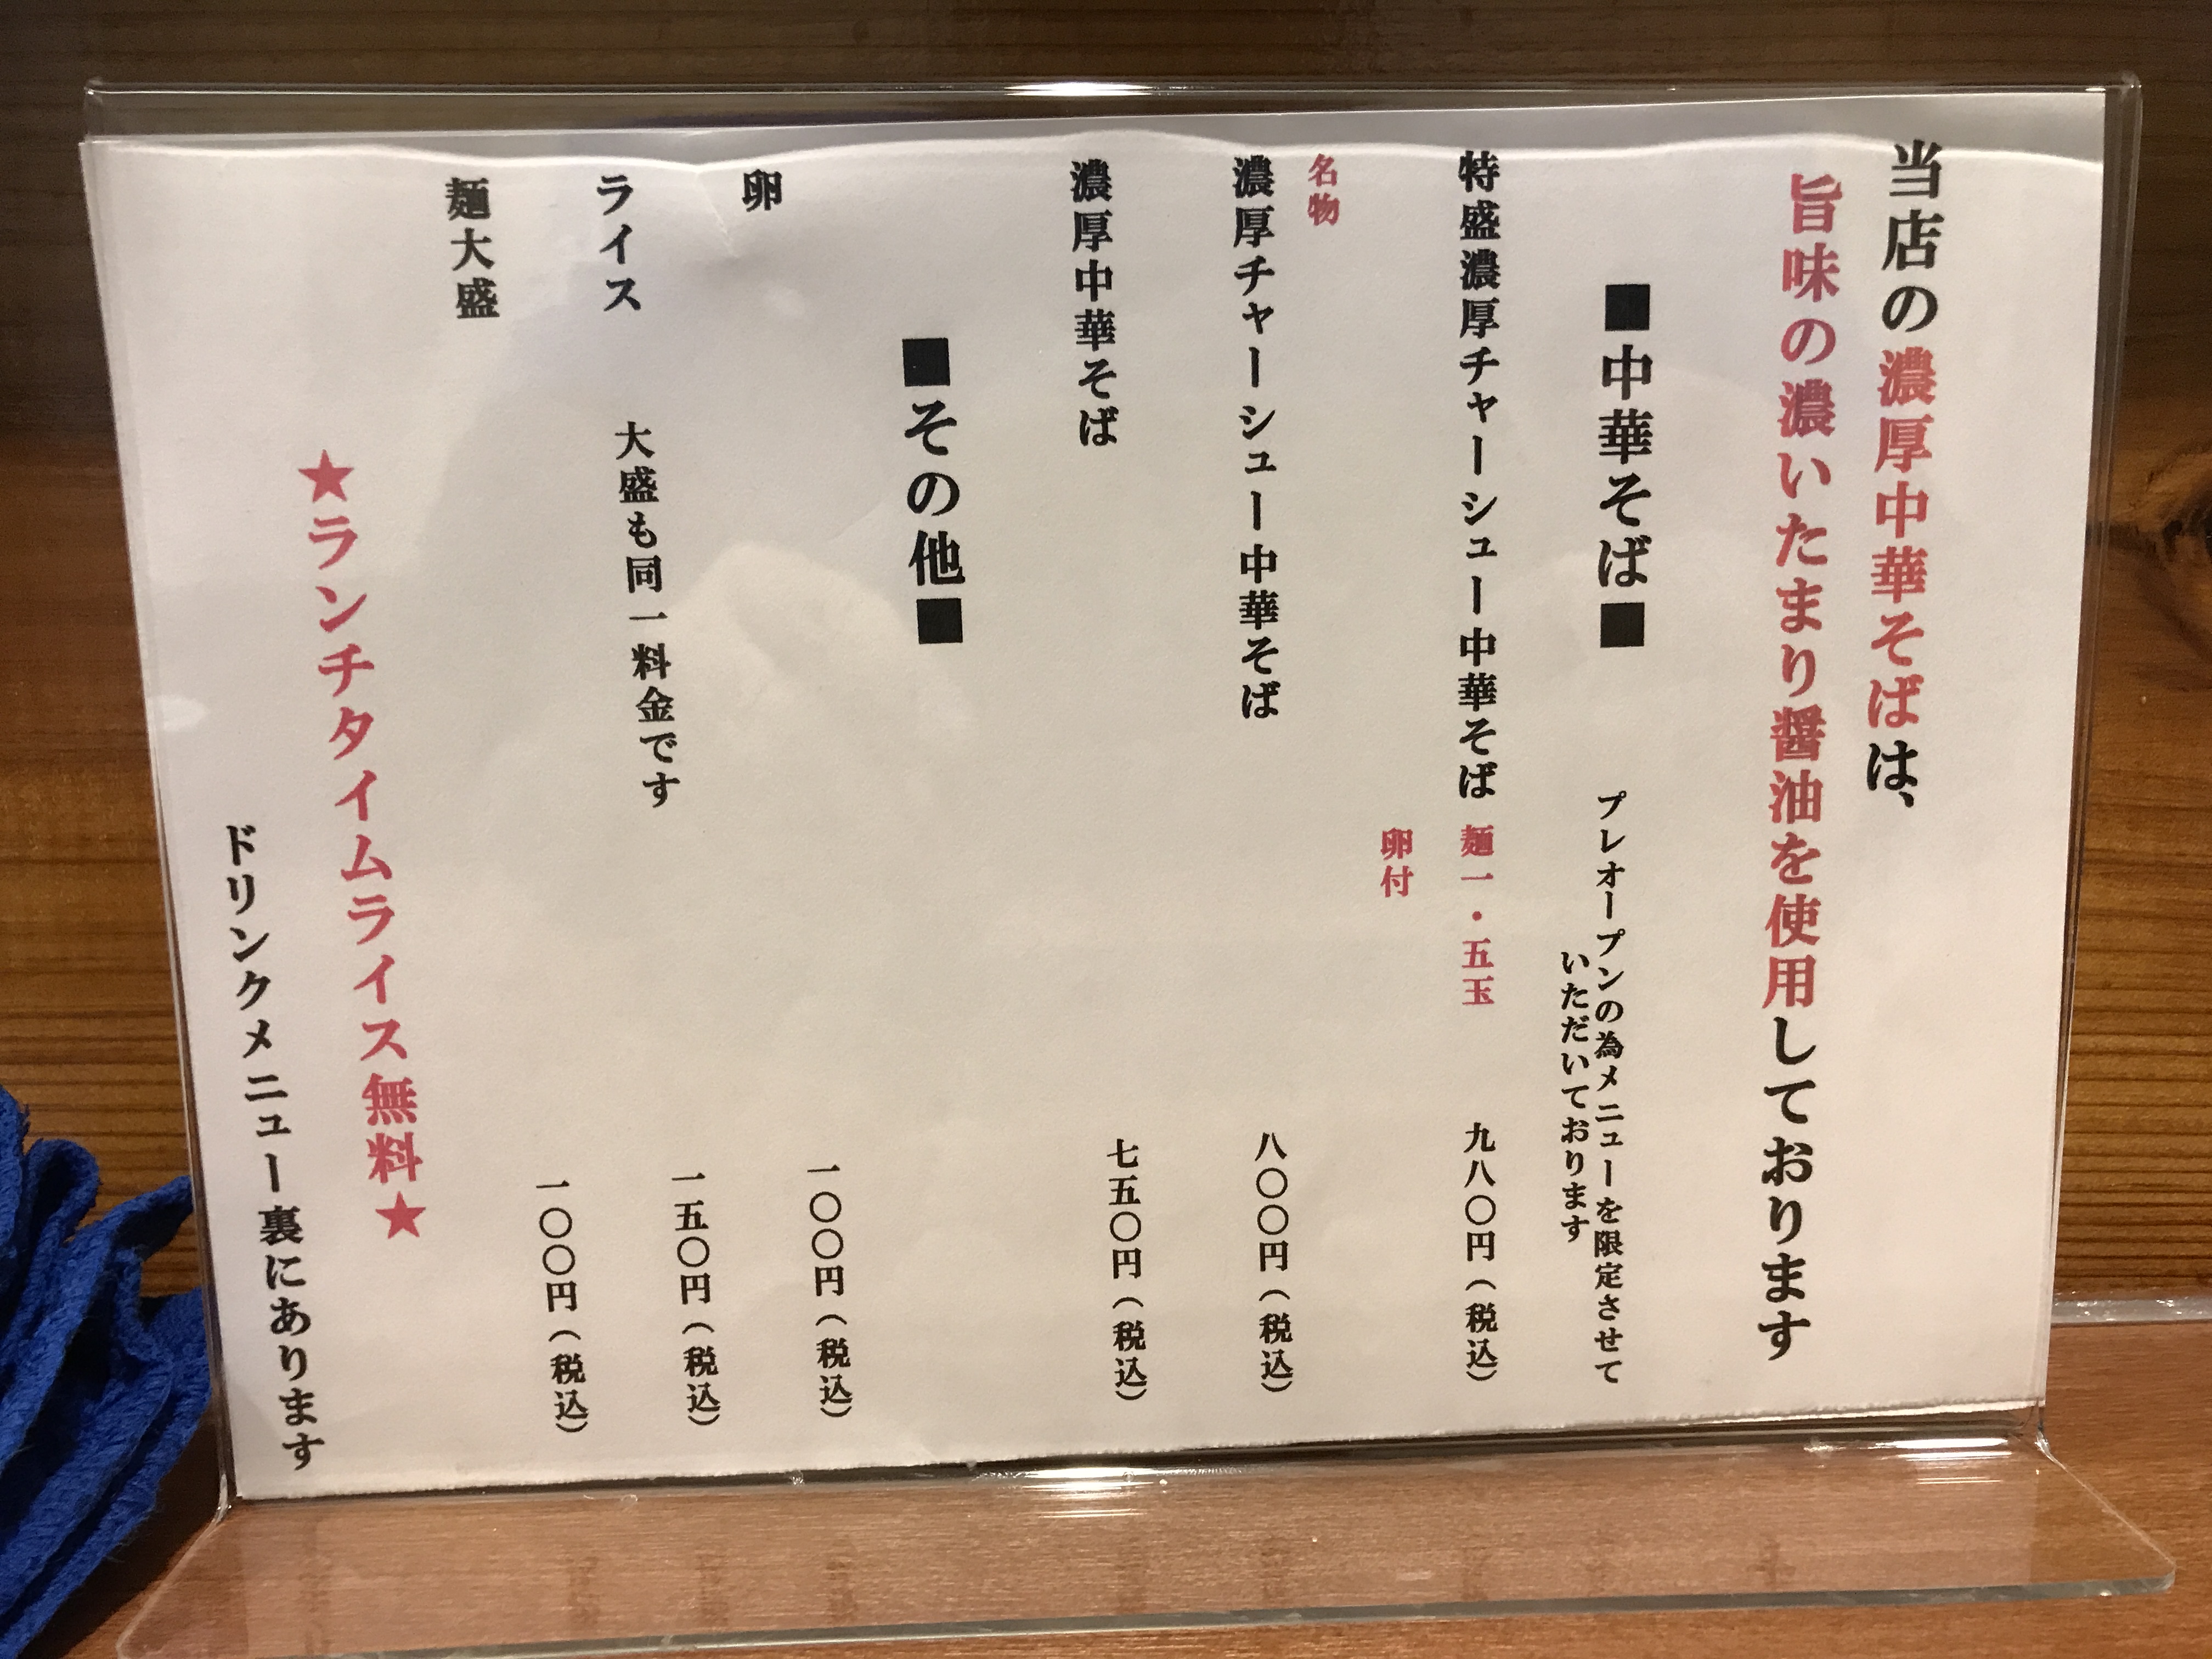 当店の濃厚中華そばは、
旨味の濃いたまり醤油を使用しております
■中華そば■
プレオープンの為メニューを限定させて
いただいております
特盛濃厚チャーシュー中華そば 麺一・五玉 九八〇円（税込）
卵付
名物
濃厚チャーシュー中華そば 八〇〇円（税込）
濃厚中華そば 七五〇円（税込）
■その他■
卵 一〇〇円（税込）
ライス 大盛も同一料金です 一五〇円（税込）
麺大盛 一〇〇円（税込）
★ランチタイムライス無料★
ドリンクメニュー裏にあります